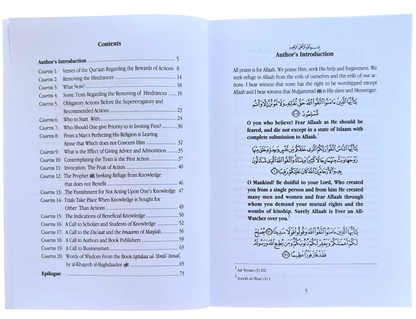 Contents
Author's Introduction 5
CHAPTER 1: Verses of the Qur'aan Regarding the Rewards of Actions 8
CHAPTER 2: Removing the Hindrances 14
CHAPTER 3: What Now? 18
CHAPTER 4: Some Texts Regarding the Removing of Hindrances 19
CHAPTER 5: Obligatory Actions Before the Supererogatory and
Recommended Actions 23
CHAPTER 6: Who to Start With 24
CHAPTER 7: Who Should One give Priority to in Inviting First? 30
CHAPTER 8: From a Man's Perfecting His Religion is Leaving
Alone that Which does not Concern Him 32
CHAPTER 9: What is the Effect of Giving Advice and Admonition 35
CHAPTER 10: Contemplating the Texts is the First Action 37
CHAPTER 11: Invocation: The Fruit of Action 40
CHAPTER 12: The Prophet ﷺ Seeking Refuge from Knowledge
that does not Benefit 46
CHAPTER 13: The Punishment for Not Acting Upon One's Knowledge 47
CHAPTER 14: Trials Take Place When Knowledge is Sought for
Other Than Actions 49
CHAPTER 15: The Indications of Beneficial Knowledge 50
CHAPTER 16: A Call to Scholars and Students of Knowledge 52
CHAPTER 17: A Call to the Du'aat and the Imaams of Masjids 56
CHAPTER 18: A Call to Authors and Book Publishers 59
CHAPTER 19: A Call to Businessmen 63
CHAPTER 20: Words of Wisdom From the Book Iqtidaa ul-'Ilmil-'Amal,
by al-Khateeb al-Baghdaadee 65
Epilogue 73
Author's Introduction
All praise is for Allaah. We praise Him, seek His help and forgiveness. We
seek refuge in Allaah from the evils of ourselves and the evils of our ac-
tions. I bear witness that none has the right to be worshipped except
Allaah and I bear witness that Muhammad ﷺ is His slave and Messenger.
O you who believe! Fear Allaah as He should be
feared, and die not except in a state of Islaam with
complete submission to Allaah.¹
O Mankind! Be dutiful to your Lord, Who created
you from a single person and from him He created
many men and women and fear Allaah through
whom you demand your mutual rights and the
wombs of kinship. Surely Allaah is Ever an All-
Watcher over you.²
5